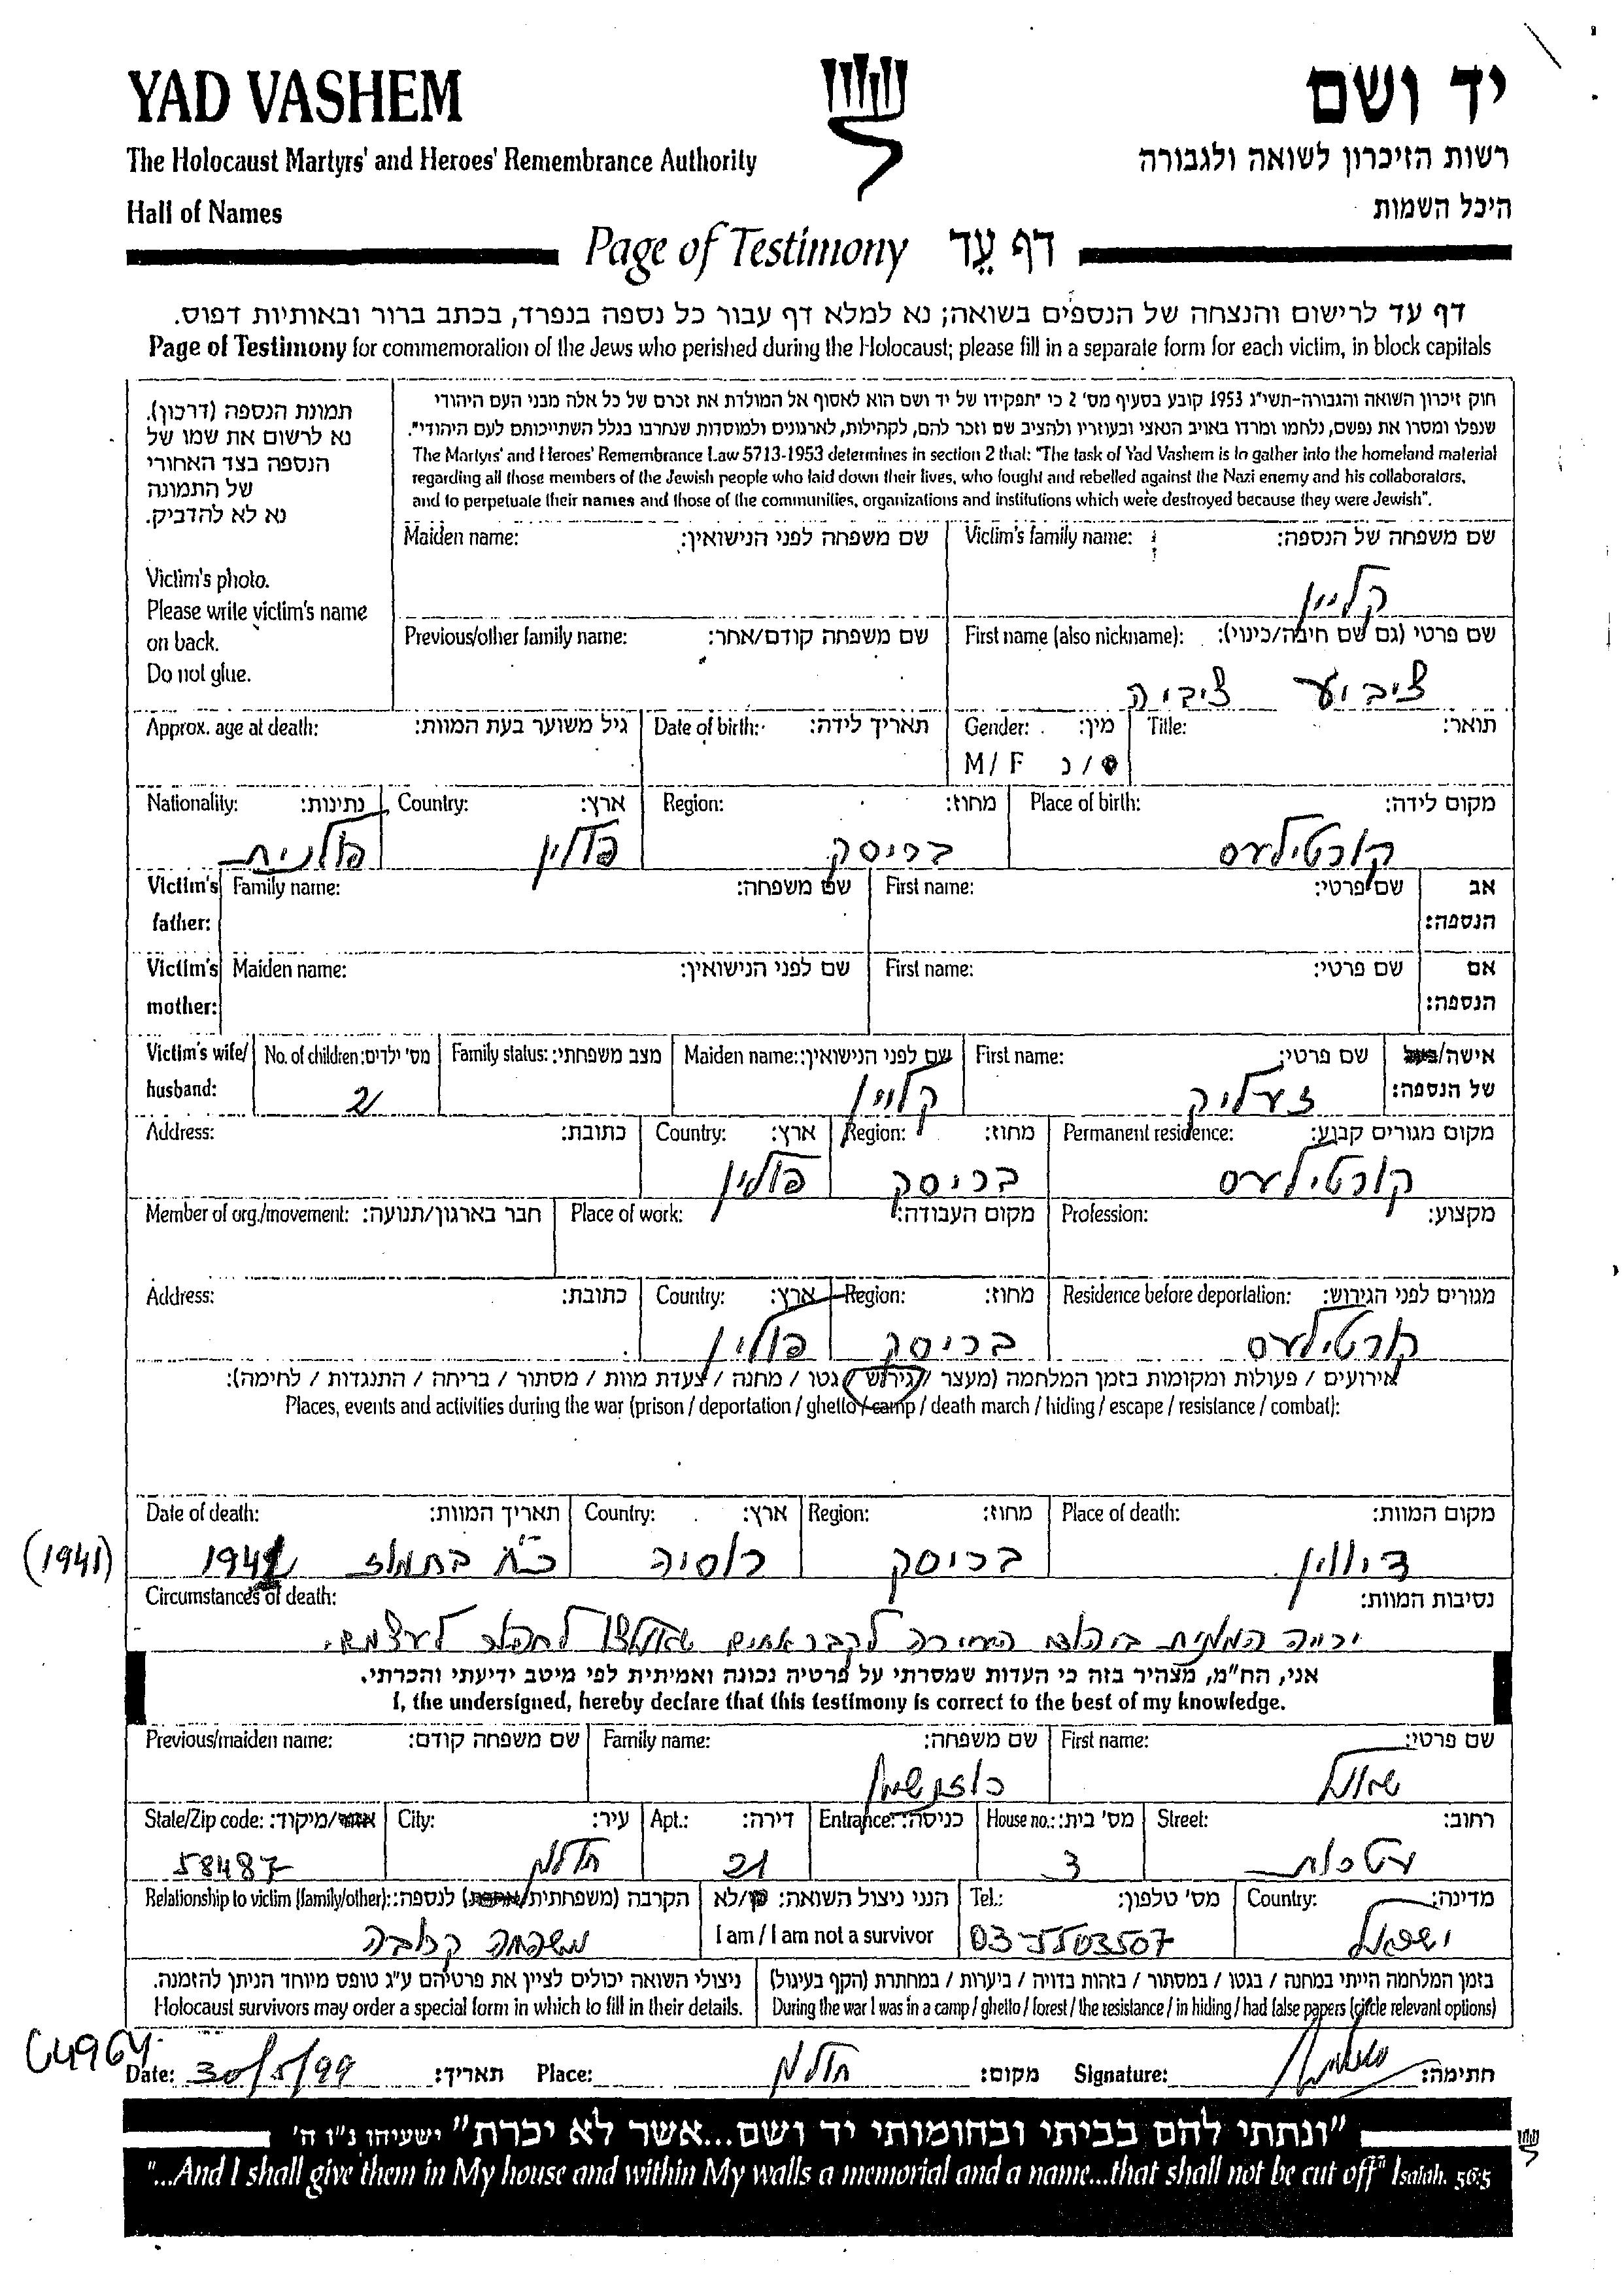 YAD VASHEM
יד ושם
The Holocaust Martyrs' and Heroes' Remembrance Authority
רשות הזיכרון לשואה ולגבורה
Hall of Names
היכל השמות
Page of Testimony דף עֵד
דף עד לרישום והנצחה של הנספים בשואה; נא למלא דף עבור כל נספה בנפרד, בכתב ברור ובאותיות דפוס.
Page of Testimony for commemoration of the Jews who perished during the Holocaust; please fill in a separate form for each victim, in block capitals
תמונת הנספה (דרכון).
נא לרשום את שמו של
הנספה בצד האחורי
של התמונה
נא לא להדביק.
Victim's photo.
Please write victim's name
on back.
Do not glue.
חוק זיכרון השואה והגבורה-תשי"ג 1953 קובע בסעיף מס' 2 כי "תפקידו של יד ושם הוא לאסוף אל המולדת את זכרם של כל אלה מבני העם היהודי
שנפלו ומסרו את נפשם, נלחמו ומרדו באויב הנאצי ובעוזריו ולהציב שם וזכר להם, לקהילות, לארגונים ולמוסדות שנחרבו בגלל השתייכותם לעם היהודי".
The Martyrs' and Heroes' Remembrance Law 5713-1953 determines in section 2 that: "The task of Yad Vashem is to gather into the homeland material
regarding all those members of the Jewish people who laid down their lives, who fought and rebelled against the Nazi enemy and his collaborators,
and to perpetuate their names and those of the communities, organizations and institutions which were destroyed because they were Jewish".
Victim's family name: שם משפחה של הנספה:
קליין
Maiden name: שם משפחה לפני הנישואין:
First name (also nickname): שם פרטי (גם שם חיבה/כינוי):
ציביע ציביה
Previous/other family name: שם משפחה קודם/אחר:
Title: תואר:
Gender: מין:
M / F נ /
Date of birth: תאריך לידה:
Approx. age at death: גיל משוער בעת המוות:
Place of birth: מקום לידה:
קורטילעס
Region: מחוז:
בריסק
Country: ארץ:
פולין
Nationality: נתינות:
פולנית
Victim's father: אב הנספה:
First name: שם פרטי:
Family name: שם משפחה:
Victim's mother: אם הנספה:
First name: שם פרטי:
Maiden name: שם לפני הנישואין:
Victim's wife/ husband: אישה/בעל של הנספה:
First name: שם פרטי:
זעליק
Maiden name: שם לפני הנישואין:
קליין
Family status: מצב משפחתי:
No. of children: מס' ילדים:
2
Permanent residence: מקום מגורים קבוע:
קורטילעס
Region: מחוז:
בריסק
Country: ארץ:
פולין
Address: כתובת:
Profession: מקצוע:
Place of work: מקום העבודה:
Member of org./movement: חבר בארגון/תנועה:
Residence before deportation: מגורים לפני הגירוש:
קורטילעס
Region: מחוז:
בריסק
Country: ארץ:
פולין
Address: כתובת:
אירועים / פעולות ומקומות בזמן המלחמה (מעצר / גירוש / גטו / מחנה / צעדת מוות / מסתור / בריחה / התנגדות / לחימה):
Places, events and activities during the war (prison / deportation / ghetto / camp / death march / hiding / escape / resistance / combat):
Place of death: מקום המוות:
דיווין
Region: מחוז:
בריסק
Country: ארץ:
רוסיה
Date of death: תאריך המוות:
בתמוז 1941
(1941)
Circumstances of death: נסיבות המוות:
יריה המונית לקבר אחים לעצמם.
אני, הח"מ, מצהיר בזה כי העדות שמסרתי על פרטיה נכונה ואמיתית לפי מיטב ידיעתי והכרתי.
I, the undersigned, hereby declare that this testimony is correct to the best of my knowledge.
First name: שם פרטי:
שמואל
Family name: שם משפחה:
Previous/maiden name: שם משפחה קודם:
Street: רחוב:
House no.: מס' בית:
3
Entrance: כניסה:
Apt.: דירה:
21
City: עיר:
חולון
State/Zip code: אזור/מיקוד:
58487
Country: מדינה:
ישראל
Tel.: מס' טלפון:
03-5503507
הנני ניצול השואה: כן/לא
I am / I am not a survivor
Relationship to victim (family/other): הקרבה (משפחתית/אחרת) לנספה:
משפחה קרובה
בזמן המלחמה הייתי במחנה / בגטו / במסתור / בזהות בדויה / ביערות / במחתרת (הקף בעיגול)
During the war I was in a camp / ghetto / forest / the resistance / in hiding / had false papers (circle relevant options)
ניצולי השואה יכולים לציין את פרטיהם ע"ג טופס מיוחד הניתן להזמנה.
Holocaust survivors may order a special form in which to fill in their details.
Date: 30/5/99 תאריך: Place: חולון מקום: Signature: חתימה:
"ונתתי להם בביתי ובחומותי יד ושם...אשר לא יכרת" ישעיהו נ"ו ה'
"...And I shall give them in My house and within My walls a memorial and a name...that shall not be cut off" Isaiah. 56:5